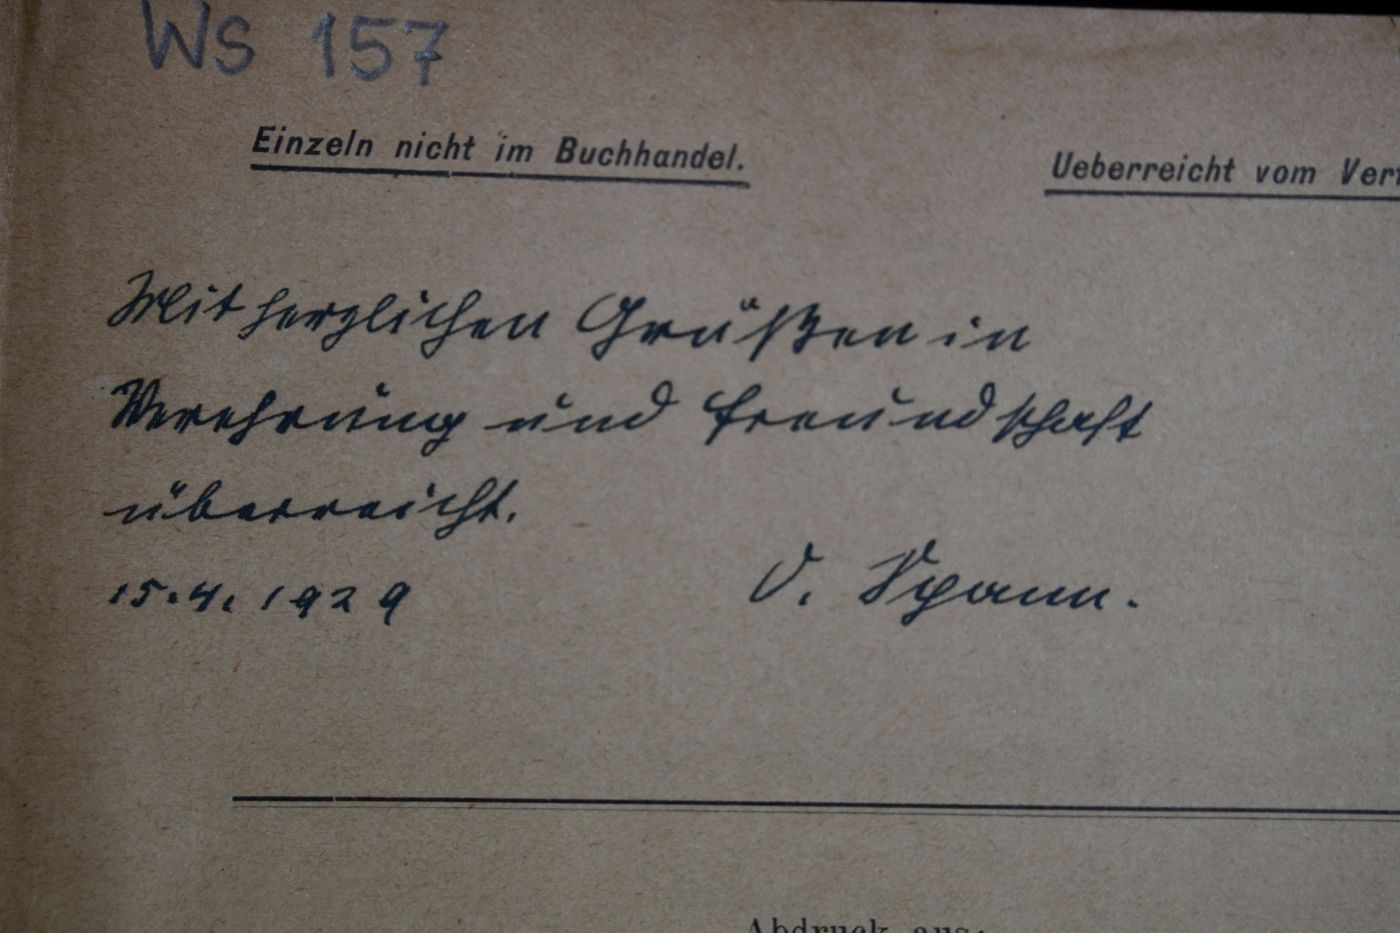 WS 157
Einzeln nicht im Buchhandel.
Ueberreicht vom
Mit herzlichen Grüßen in
Verehrung und Freundschaft
überreicht.
15.4.1929
O. Spann.
Abdruck aus: